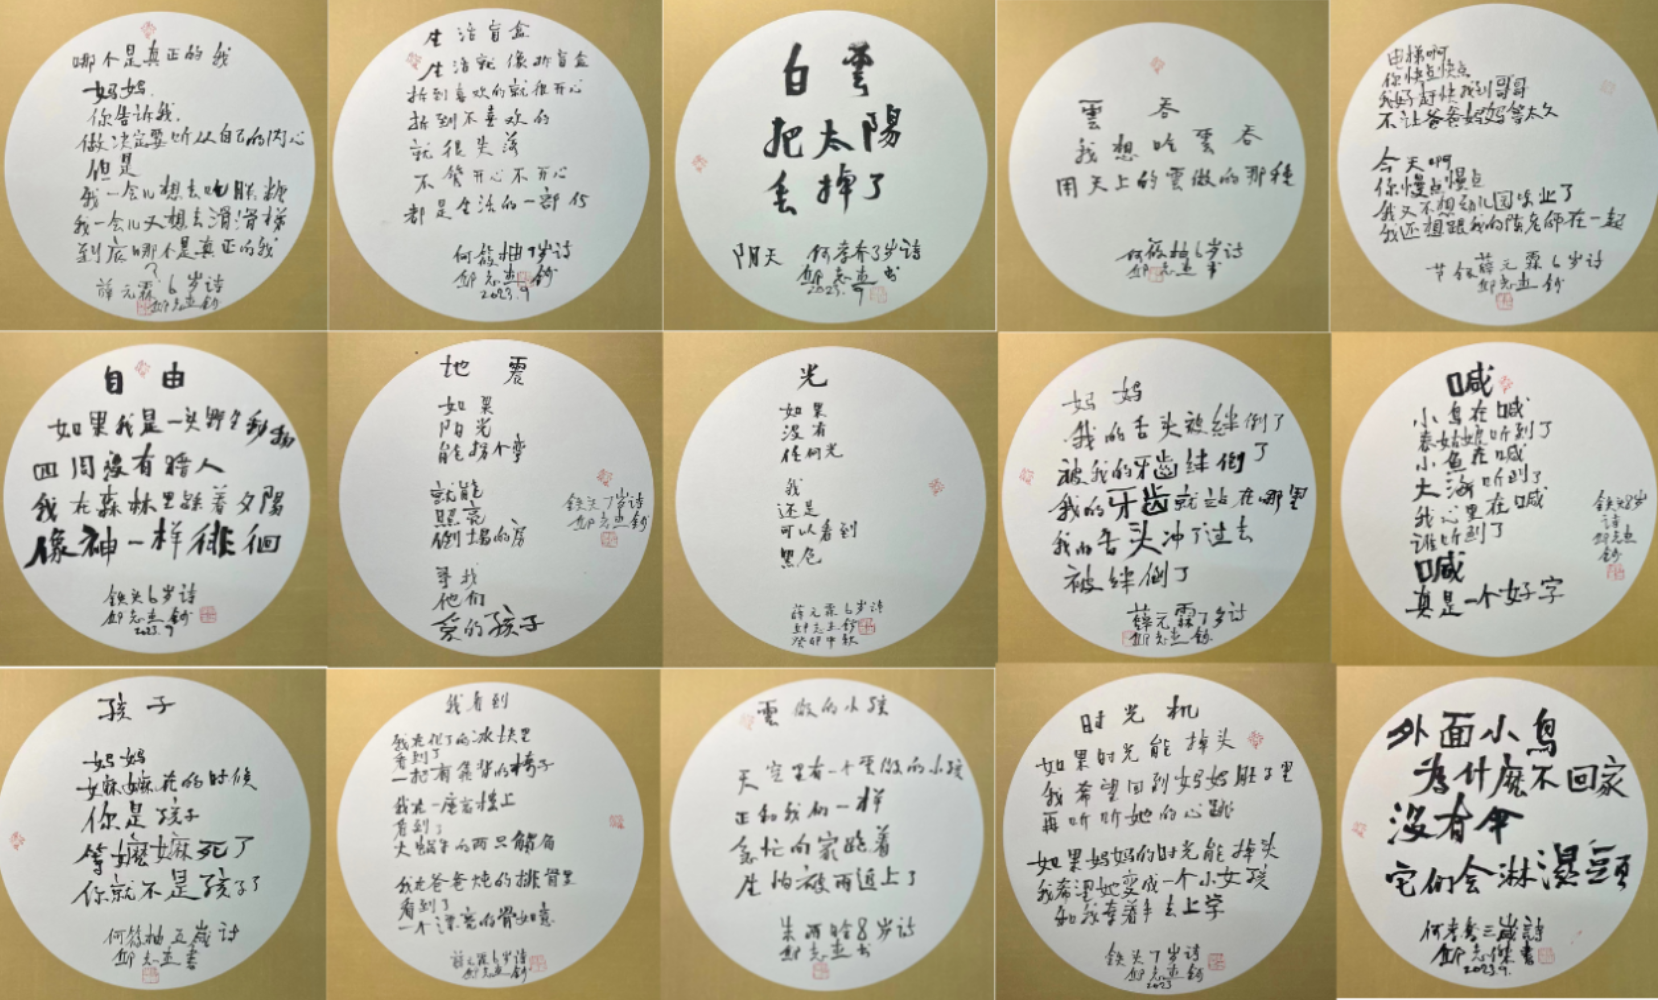 哪个是真正的我
妈妈
你告诉我
做决定要听从自己的内心
但是
我一会儿想去吃棉花糖
我一会儿又想去滑滑梯
到底哪个是真正的我
?
薛元霖6岁诗
邱志杰钞
生活盲盒
生活就像拆盲盒
拆到喜欢的就很开心
拆到不喜欢的
就很失落
不管开心不开心
都是生活的一部份
何筱柚7岁诗
邱志杰钞
2023.9
白雲
把太陽
丢掉了
阴天 何孝乔3岁诗
邱志杰书
2023.9
雲吞
我想吃雲吞
用天上的雲做的那种
何筱柚6岁诗
邱志杰书
电梯啊
你快点快点
我好赶快找到哥哥
不让爸爸妈妈等太久
今天啊
你慢点慢点
我又不想幼儿园毕业了
我还想跟我的陈老师在一起
节仅薛元霖6岁诗
邱志杰钞
自由
如果我是一头野生动物
四周没有路人
我在森林里踩着夕陽
像神一样徘徊
铁头6岁诗
邱志杰钞
2023.9
地震
如果
阳光
能拐个弯
就能
照亮
倒塌的房
寻找
他们
爱的孩子
铁头7岁诗
邱志杰钞
光
如果
没有
任何光
我
还是
可以看到
黑色
薛元霖6岁诗
邱志杰钞
癸卯中秋
妈妈
我的舌头被绊倒了
被我的牙齿绊倒了
我的牙齿就站在哪里
我的舌头冲了过去
被绊倒了
薛元霖7岁诗
邱志杰钞
喊
小鸟在喊
春姑娘听到了
小鱼在喊
大海听到了
我心里在喊
谁听到了
喊
真是一个好字
铁头8岁
诗
邱志杰
钞
孩子
妈妈
嬷嬷在的时候
你是孩子
等嬷嬷死了
你就不是孩子了
何筱柚五歲诗
邱志杰書
我看到
我在化了的冰块里
看到了
一把有靠背的椅子
我在一座高楼上
看到了
大蜗牛的两只觸角
我在爸爸炖的排骨里
看到了
一个漂亮的骨如意
薛元霖6岁诗
邱志杰钞
雲做的小孩
天空里有一个雲做的小孩
正和我们一样
急忙向家跑着
生怕被雨追上了
朱雨晗8岁诗
邱志杰书
时光机
如果时光能掉头
我希望回到妈妈肚子里
再听听她的心跳
如果妈妈的时光能掉头
我希望她变成一个小女孩
和我牵着手去上学
铁头7岁诗
邱志杰钞
2023
外面小鳥
為什麽不回家
沒有伞
它们会淋濕頭
何孝乔三歲詩
邱志傑書
2023.9.